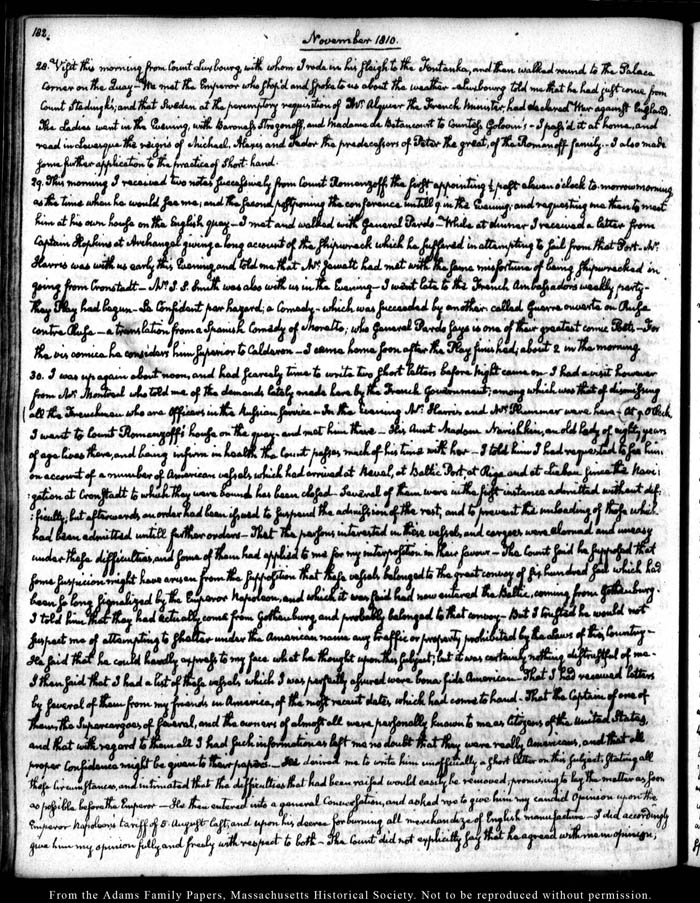 182.
November 1810.
28. Visit this morning from Count Luxbourg, with whom I rode in his sleigh to the Fontanka, and then walked round to the Palace
corner on the Quay — We met the Emperor who stop'd and spoke to us about the weather — Luxbourg told me that he had just come from
Count Stedingk's; and that Sweden at the peremptory requisition of Mr. Alquier the French Minister, had declared War against England.
The Ladies went in the Evening, with Baroness Strogonoff, and Madame de Betancourt to Countess Golovin's — I pass'd it at home, and
read in Levesque the reigns of Michael, Alexis and Fedor the predecessors of Peter the great, of the Romanoff family. — I also made
some further application to the practice of Short hand.
29. This morning I received two notes successively from Count Romanzoff, the first appointing ½ past eleven o'clock to-morrow morning
as the time when he would see me; and the second postponing the conference untill 9 in the Evening; and requesting me then to meet
him at his own house on the English quay — I met and walked with General Pardo — While at dinner I received a letter from
Captain Hopkins at Archangel giving a long account of the shipwreck which he suffered in attempting to sail from that Port. Mr.
Harris was with us early this Evening and told me that Mr. Jewett had met with the same misfortune of being shipwrecked in
going from Cronstadt — Mr. S. Smith was also with us in the Evening — I went late to the French Ambassador's weekly party —
they Play had begun — Le Confident par hazard; a Comedy — which was succeeded by another called Guerre ouverte ou Ruse
contre Ruse — a translation from a Spanish Comedy of Moralto; who General Pardo says is one of their greatest comic Poets — For
the vis comica he considers him superior to Calderon — I came home soon after the Play finished; about 2 in the morning
30. I was up again about noon, and had scarcely time to write two short letters before Night came on — I had a visit however
from Mr. Montreal who told me of the demands lately made here by the French Government; among which was that of dismissing
all the Frenchmen who are Officers in the Russian service — In the Evening Mr. Harris and Mr. Plummer were here — At 9 o'Clock
I went to Count Romanzoff's house on the quay — and met him there — His Aunt Madam Narishkin, an old lady of eighty years
of age lives there, and being infirm in health the Count passes much of his time with her — I told him I had requested to see him,
on account of a number of American vessels which had arrived at Reval, at Baltic Port, at Riga and at Liebau since the Navi:
:gation at Cronstadt to which they were bound has been closed — Several of them were in the first instance admitted without dif:
:ficulty; but afterwards an order had been issued to suspend the admission of the rest, and to prevent the unloading of those which
had been admitted untill further orders — That the persons interested in these vessels, and cargoes were alarmed and uneasy
under these difficulties, and some of them had applied to me for my interposition in their favour — The Count said he supposed that
some suspicion might have arisen from the supposition that these vessels belonged to the great convoy of six hundred sail which had
been so long signalized by the Emperor Napoleon, and which it was said had now entered the Baltic, coming from Gothenburg.
I told him that they had actually come from Gothenburg and probably belonged to that convoy — But I trusted he would not
suspect me of attempting to shelter under the American name any traffic or property prohibited by the Laws of this Country —
He said that he could hardly express to my face what he thought upon this subject; but it was certainly nothing distrustful of me —
I then said that I had a list of these vessels, which I was perfectly assured were bona fide American — That I had received letters
by several of them from my friends in America, of the most recent dates which had come to hand. That the Captain of one of
them, the Supercargoes of several, and the owners of almost all were personally known to me as Citizens of the United States,
and that with regard to them all I had such information as left me no doubt that they were really Americans, and that all
proper Confidence might be given to their papers. — He desired me to write him unofficially a short letter on this subject, stating all
these circumstances, and intimated that the difficulties that had been raised would easily be removed; promising to lay the matter as soon
as possible before the Emperor — He then entered into a general Conversation, and asked me to give him my candid Opinion upon the
Emperor Napoleon's tariff of 5 August last, and upon his decree for burning all merchandize of English manufacture — I did accordingly
give him my opinion fully and freely with respect to both — The Count did not explicitly say that he agreed with me in opinion;
From the Adams Family Papers, Massachusetts Historical Society. Not to be reproduced without permission.